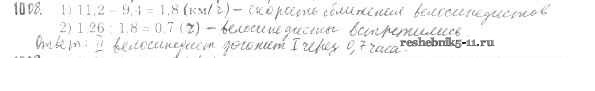 1098. 1) 11,2 - 9,4 = 1,8 (км/ч) – скорость сближения велосипедистов
2) 1,26 : 1,8 = 0,7 (ч) – велосипедисты встретились
Ответ: II велосипедист догонит I через 0,7 часа.
www.reshebnik5-11.ru